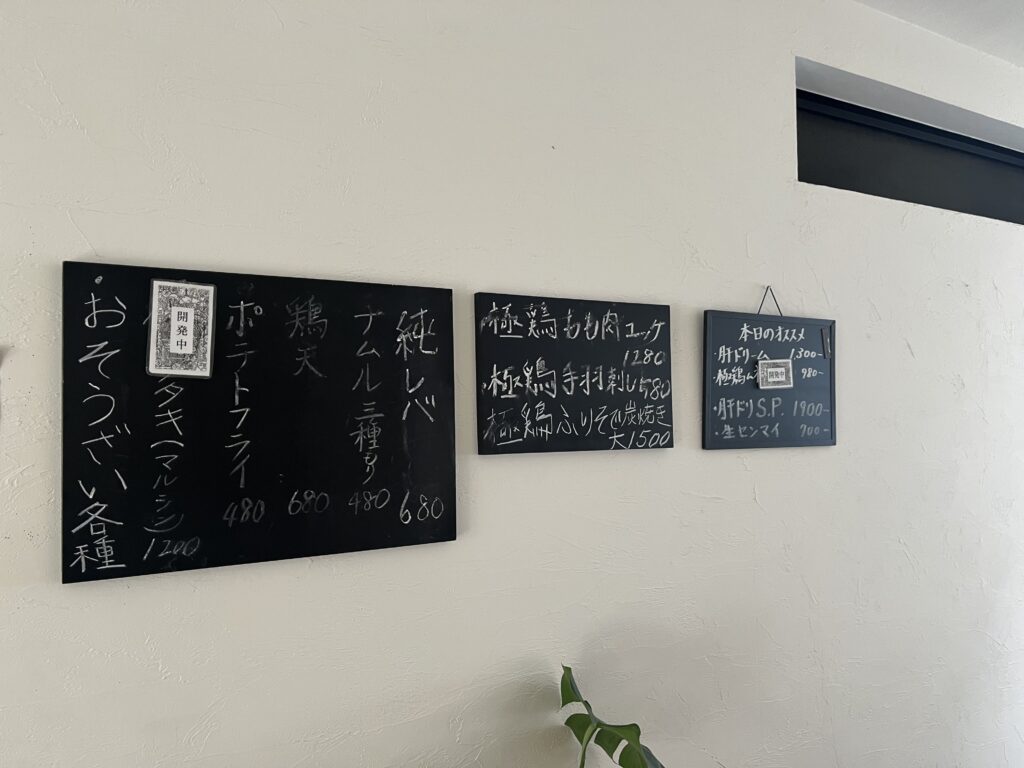 純レバー 680
ナムル三種もり 480
鶏天 680
ポテトフライ 480
タキ(マルシン) 1200
開発中
・おそうざい各種
・極鶏もも肉ユッケ
1280
・極鶏手羽刺し 580
極鶏ふりそで炭焼き
大1500
本日のオススメ
・肝ドリーム 1,300-
・極鶏 980-
開発中
・肝ドリS.P. 1900-
・生センマイ 900-